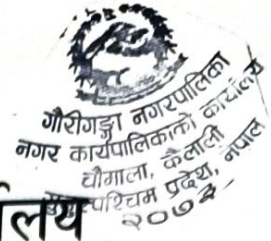 गौरीगङ्गा नगरपालिका
नगर कार्यपालिकाको कार्यालय
चौमाला, कैलाली
पश्चिम प्रदेश, नेपाल
२०७३
र्यालय